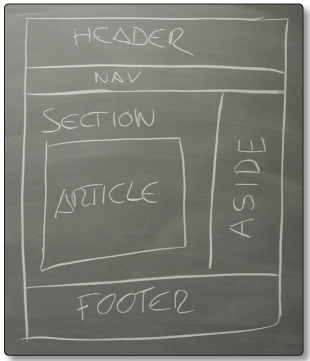 HEADER
NAV
SECTION
ARTICLE
ASIDE
FOOTER